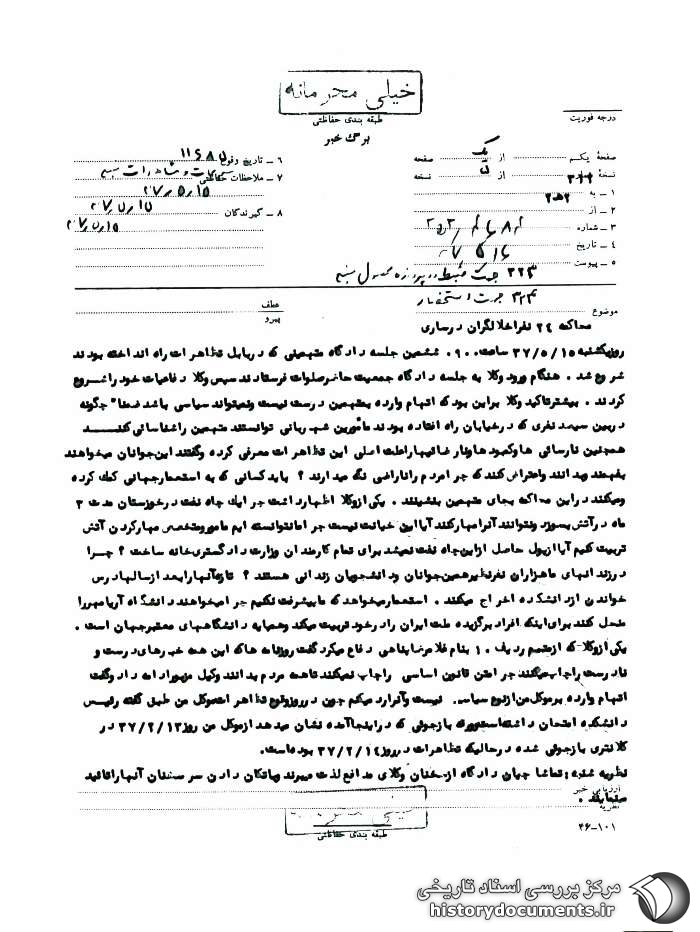 خیلی محرمانه
طبقه بندی حفاظتی
برگ خبر
درجه فوریت
صفحهٔ یکم از یک صفحه
نسخهٔ از نسخه
۱ ـ به
۲ ـ از
۳ ـ شماره
۴ ـ تاریخ
۵ ـ پیوست
۶ ـ تاریخ وقوع
۷ ـ ملاحظات حفاظتی
۳۷/۵/۱۵
۸ ـ گیرندگان
۳۷/۵/۱۵
۳۷/۵/۱۵
۳۲۳ جهت ضبط در پرونده
۳۲۴ جهت استحضار
موضوع
عطف
پیرو
محاکمه ۲۴ نفر اخلالگران در ساری
روز یکشنبه ۳۷/۵/۱۵ ساعت ۰۹۰۰ ششمین جلسه دادگاه متهمینی که در بابل تظاهرات راه انداخته بودند
شروع شد . هنگام ورود وکلا به جلسه دادگاه جمعیت حاضر صلوات فرستادند سپس وکلا دفاعیات خود را شروع
کردند . بیشتر تاکید وکلا بر این بود که اتهام وارده به متهمین درست نیست و نمیتواند سیاسی باشد ضمنا" چگونه
در بین سیصد نفری که در خیابان راه افتاده بودند مأمورین شهربانی توانستند متهمین را شناسائی کننـد
همچنین نارسائی ها و کمبودها و نارضائیها را علت اصلی این تظاهرات معرفی کرده و گفتند این جوانان میخواهند
بفهمند و بدانند و اعتراض کنند که چرا مردم را ناراضی نگه میدارند ؟ باید کسانی که به استعمار جهانی کمک کرده
و میکنند در این محاکمه بجای متهمین بنشینند . یکی از وکلا اظهار داشت چرا یک چاه نفت در خوزستان مدت ۳
ماه در آتش بسوزد و نتوانند آنرا مهار کنند آیا این خیانت نیست چرا ما نتوانسته ایم مامور و متخصص مهار کردن آتش
تربیت کنیم آیا از پول حاصل از این چاه نفت نمیشد برای تمام کارمندان وزارت دادگستری خانه ساخت ؟ چـرا
در زندانهای ما هزاران نفر نظیر همین جوانان و دانشجویان زندانی هستند ؟ تازه آنها را بعد از سالها درس
خواندن از دانشکده اخراج میکنند . استعمار میخواهد که ما پیشرفت نکنیم چرا میخواهند دانشگاه آریامهر را
منحل کنند برای اینکه افراد برگزیده ملت ایران را در خود تربیت میکند و همپایه دانشگاههای معتبر جهان است .
یکی از وکلا که از متهم ردیف ۱۰ بنام غلامرضا پناهی دفاع میکرد گفت روزنامه ها که این همه خبرهای درست و
نادرست را چاپ میکنند چرا متن قانون اساسی را چاپ نمیکنند تا همه مردم بدانند وکیل مزبور ادامه داد و گفت
اتهام وارده بر موکل من از نوع سیاسی نیست و آنرا رد میکنم چون در روز وقوع تظاهرات موکل من طبق گفته رئیس
دانشکده امتحان داشته است و برگه بازجوئی که در اینجا آمده نشان میدهد از موکل من روز ۳۷/۲/۱۳ در
کلانتری بازجوئی شده در حالیکه تظاهرات در روز ۳۷/۲/۱۴ بوده است.
نظریه شنبه : تماشاچیان دادگاه از سخنان وکلای مدافع لذت میبرند و با تکان دادن سر سخنان آنها را تائید
مینمایند .
ارزیابی خبر
نظریه
طبقه بندی حفاظتی
۴۶-۱۰۱
مرکز بررسی اسناد تاریخی
historydocuments.ir